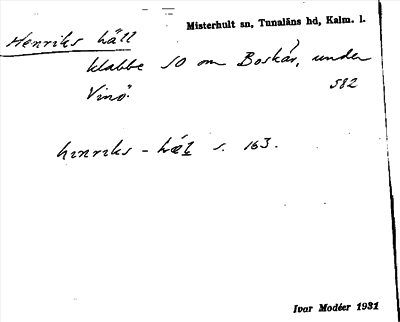 Misterhult sn, Tunaläns hd, Kalm. l.
Henriks häll
klabbe SO om Boskär, under
Vinö. 582
hinriks - hæl s. 163.
Ivar Modéer 1931